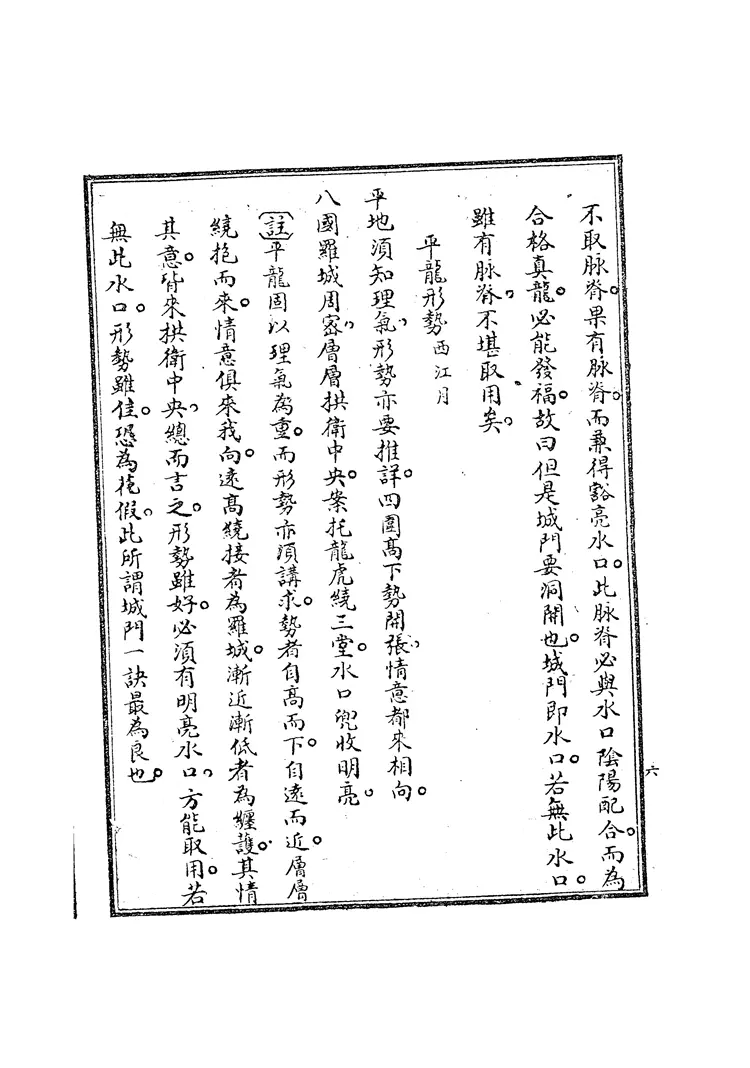 不取脉脊。果有脉脊。而兼得豁亮水口。此脉脊必與水口陰陽配合。而為
合格真龍。必能發福。故曰但是城門要洞開也。城門即水口。若無此水口。
雖有脉脊、不堪取用矣、
平龍形勢 西江月
平地須知理氣、形勢亦要推詳。四圍高下勢開張、情意都來相向。
八國羅城周密、層層拱衛中央。案托龍虎繞三堂。水口兜收明亮。
〔註〕平龍固以理氣為重。而形勢亦須講求。勢者自高而下。自遠而近。層層
繞抱而來。情意俱來我向。遠高繞接者為羅城。漸近漸低者為纏護。其情
其意。皆來拱衛中央、總而言之。形勢雖好。必須有明亮水口、方能取用。若
無此水口。形勢雖佳。恐為花假。此所謂城門一訣最為良也。
六